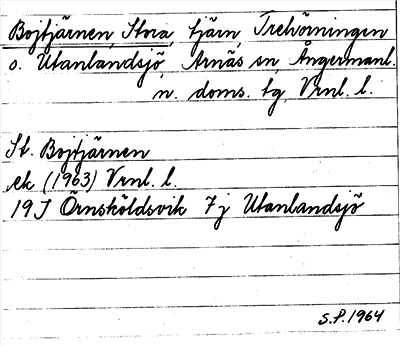 Bojtjärnen, Stora, tjärn, Trehörningen
o. Utanlandsjö, Arnäs sn, Ångermanl.
n. doms. tg, Vrnl. l.
St. Bojtjärnen
ek (1963) Vrnl. l.
19J Örnsköldsvik 7j Utanlandsjö
S.P. 1964